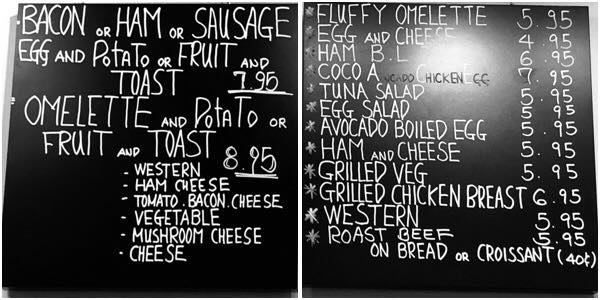 BACON OR HAM OR SAUSAGE
EGG AND POTATO OR FRUIT AND
TOAST 7.95
OMELETTE AND POTATO OR
FRUIT AND TOAST 8.95
- WESTERN
- HAM CHEESE
- TOMATO.BACON.CHEESE
- VEGETABLE
- MUSHROOM CHEESE
- CHEESE
* FLUFFY OMELETTE 5.95
* EGG AND CHEESE 4.95
* HAM B.L 6.95
* COCO A CHICKEN EGG 7.95
* TUNA SALAD 5.95
* EGG SALAD 5.95
* AVOCADO BOILED EGG 5.95
* HAM AND CHEESE 5.95
* GRILLED VEG 5.95
* GRILLED CHICKEN BREAST 6.95
* WESTERN 5.95
* ROAST BEEF 5.95
ON BREAD OR CROISSANT (40¢)